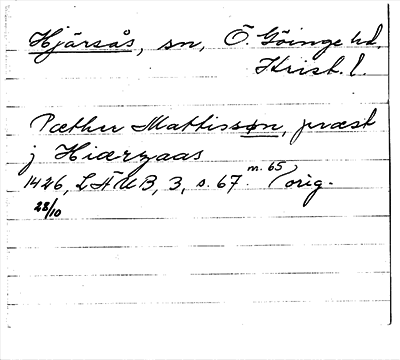 Hjärsås, sn, Ö. Göinge hd,
Krist. l.
Pæther Mattissøn, præst
j Hiærzaas
1426, LÄUB, 3, s. 67. m. 65 orig.
28/10